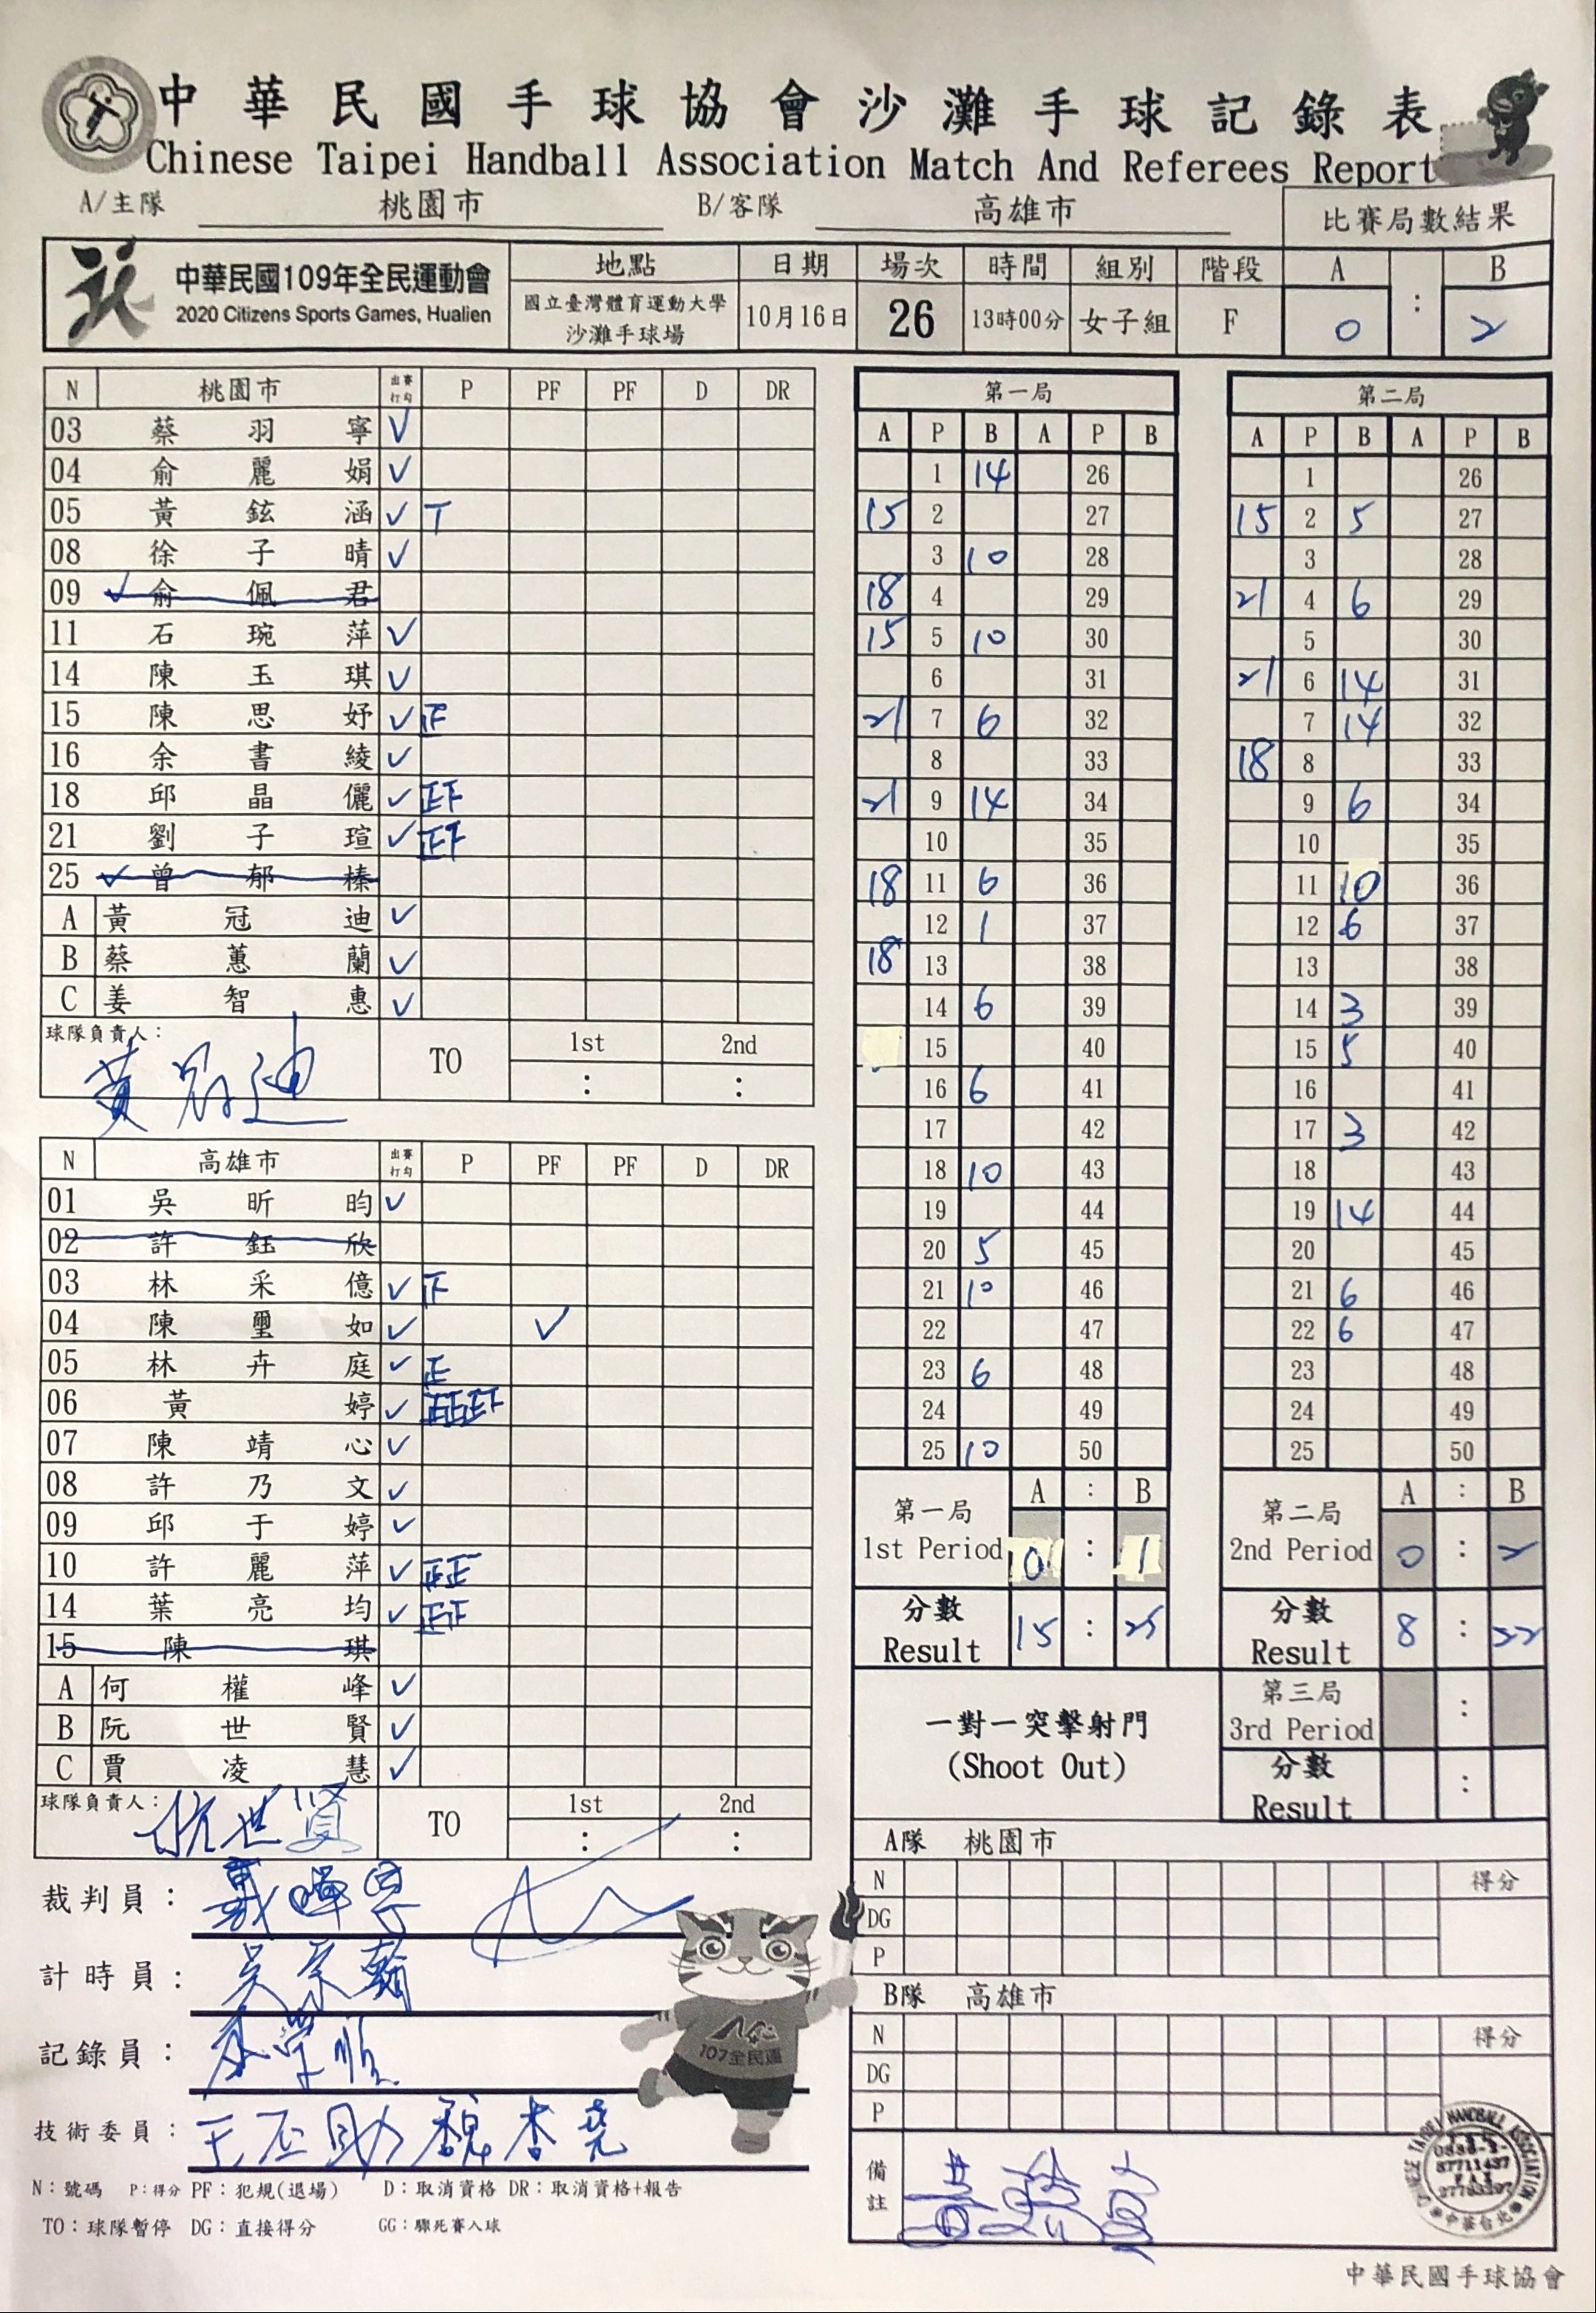 中華民國手球協會沙灘手球記錄表
Chinese Taipei Handball Association Match And Referees Report
A/主隊 桃園市 B/客隊 高雄市 比賽局數結果
中華民國109年全民運動會 地點 日期 場次 時間 組別 階段 A : B
2020 Citizens Sports Games, Hualien 國立臺灣體育運動大學 沙灘手球場 10月16日 26 13時00分 女子組 F 0 2
N 桃園市 出賽打勾 P PF PF D DR
03 蔡羽寧 ✓
04 俞麗娟 ✓
05 黃鉉涵 ✓ T
08 徐子晴 ✓
09 ✓ 俞佩君
11 石琬萍 ✓
14 陳玉琪 ✓
15 陳思妤 ✓ 正
16 余書綾 ✓
18 邱晶儷 ✓
21 劉子瑄 ✓
25 ✓ 曾郁榛
A 黃冠迪 ✓
B 蔡蕙蘭 ✓
C 姜智惠 ✓
球隊負責人: TO 1st 2nd
黃冠迪 : :
N 高雄市 出賽打勾 P PF PF D DR
01 吳昕昀 ✓
02 許鈺欣
03 林采億 ✓
04 陳璽如 ✓ ✓
05 林卉庭 ✓ 正
06 黃婷 ✓
07 陳靖心 ✓
08 許乃文 ✓
09 邱于婷 ✓
10 許麗萍 ✓ 正正
14 葉亮均 ✓
15 陳琪
A 何權峰 ✓
B 阮世賢 ✓
C 賈凌慧 ✓
球隊負責人: TO 1st 2nd
阮世賢 : :
裁判員:
計時員:
記錄員:
技術委員:
N:號碼 P:得分 PF:犯規(退場) D:取消資格 DR:取消資格+報告
TO:球隊暫停 DG:直接得分 GG:驟死賽入球
107全民運
第一局
A P B A P B
1 14 26
15 2 27
3 10 28
18 4 29
15 5 10 30
6 31
21 7 6 32
8 33
21 9 14 34
10 35
18 11 6 36
12 1 37
18 13 38
14 6 39
15 40
16 6 41
17 42
18 10 43
19 44
20 5 45
21 10 46
22 47
23 6 48
24 49
25 10 50
第一局 1st Period A : B
0 : 1
分數 Result 15 : 25
第二局
A P B A P B
1 26
15 2 5 27
3 28
21 4 6 29
5 30
21 6 14 31
7 14 32
18 8 33
9 6 34
10 35
11 10 36
12 6 37
13 38
14 3 39
15 5 40
16 41
17 3 42
18 43
19 14 44
20 45
21 6 46
22 6 47
23 48
24 49
25 50
第二局 2nd Period A : B
0 : 2
分數 Result 8 : 22
一對一突擊射門
(Shoot Out)
第三局 3rd Period :
分數 Result :
A隊 桃園市
N 得分
DG
P
B隊 高雄市
N 得分
DG
P
備註
中華民國手球協會